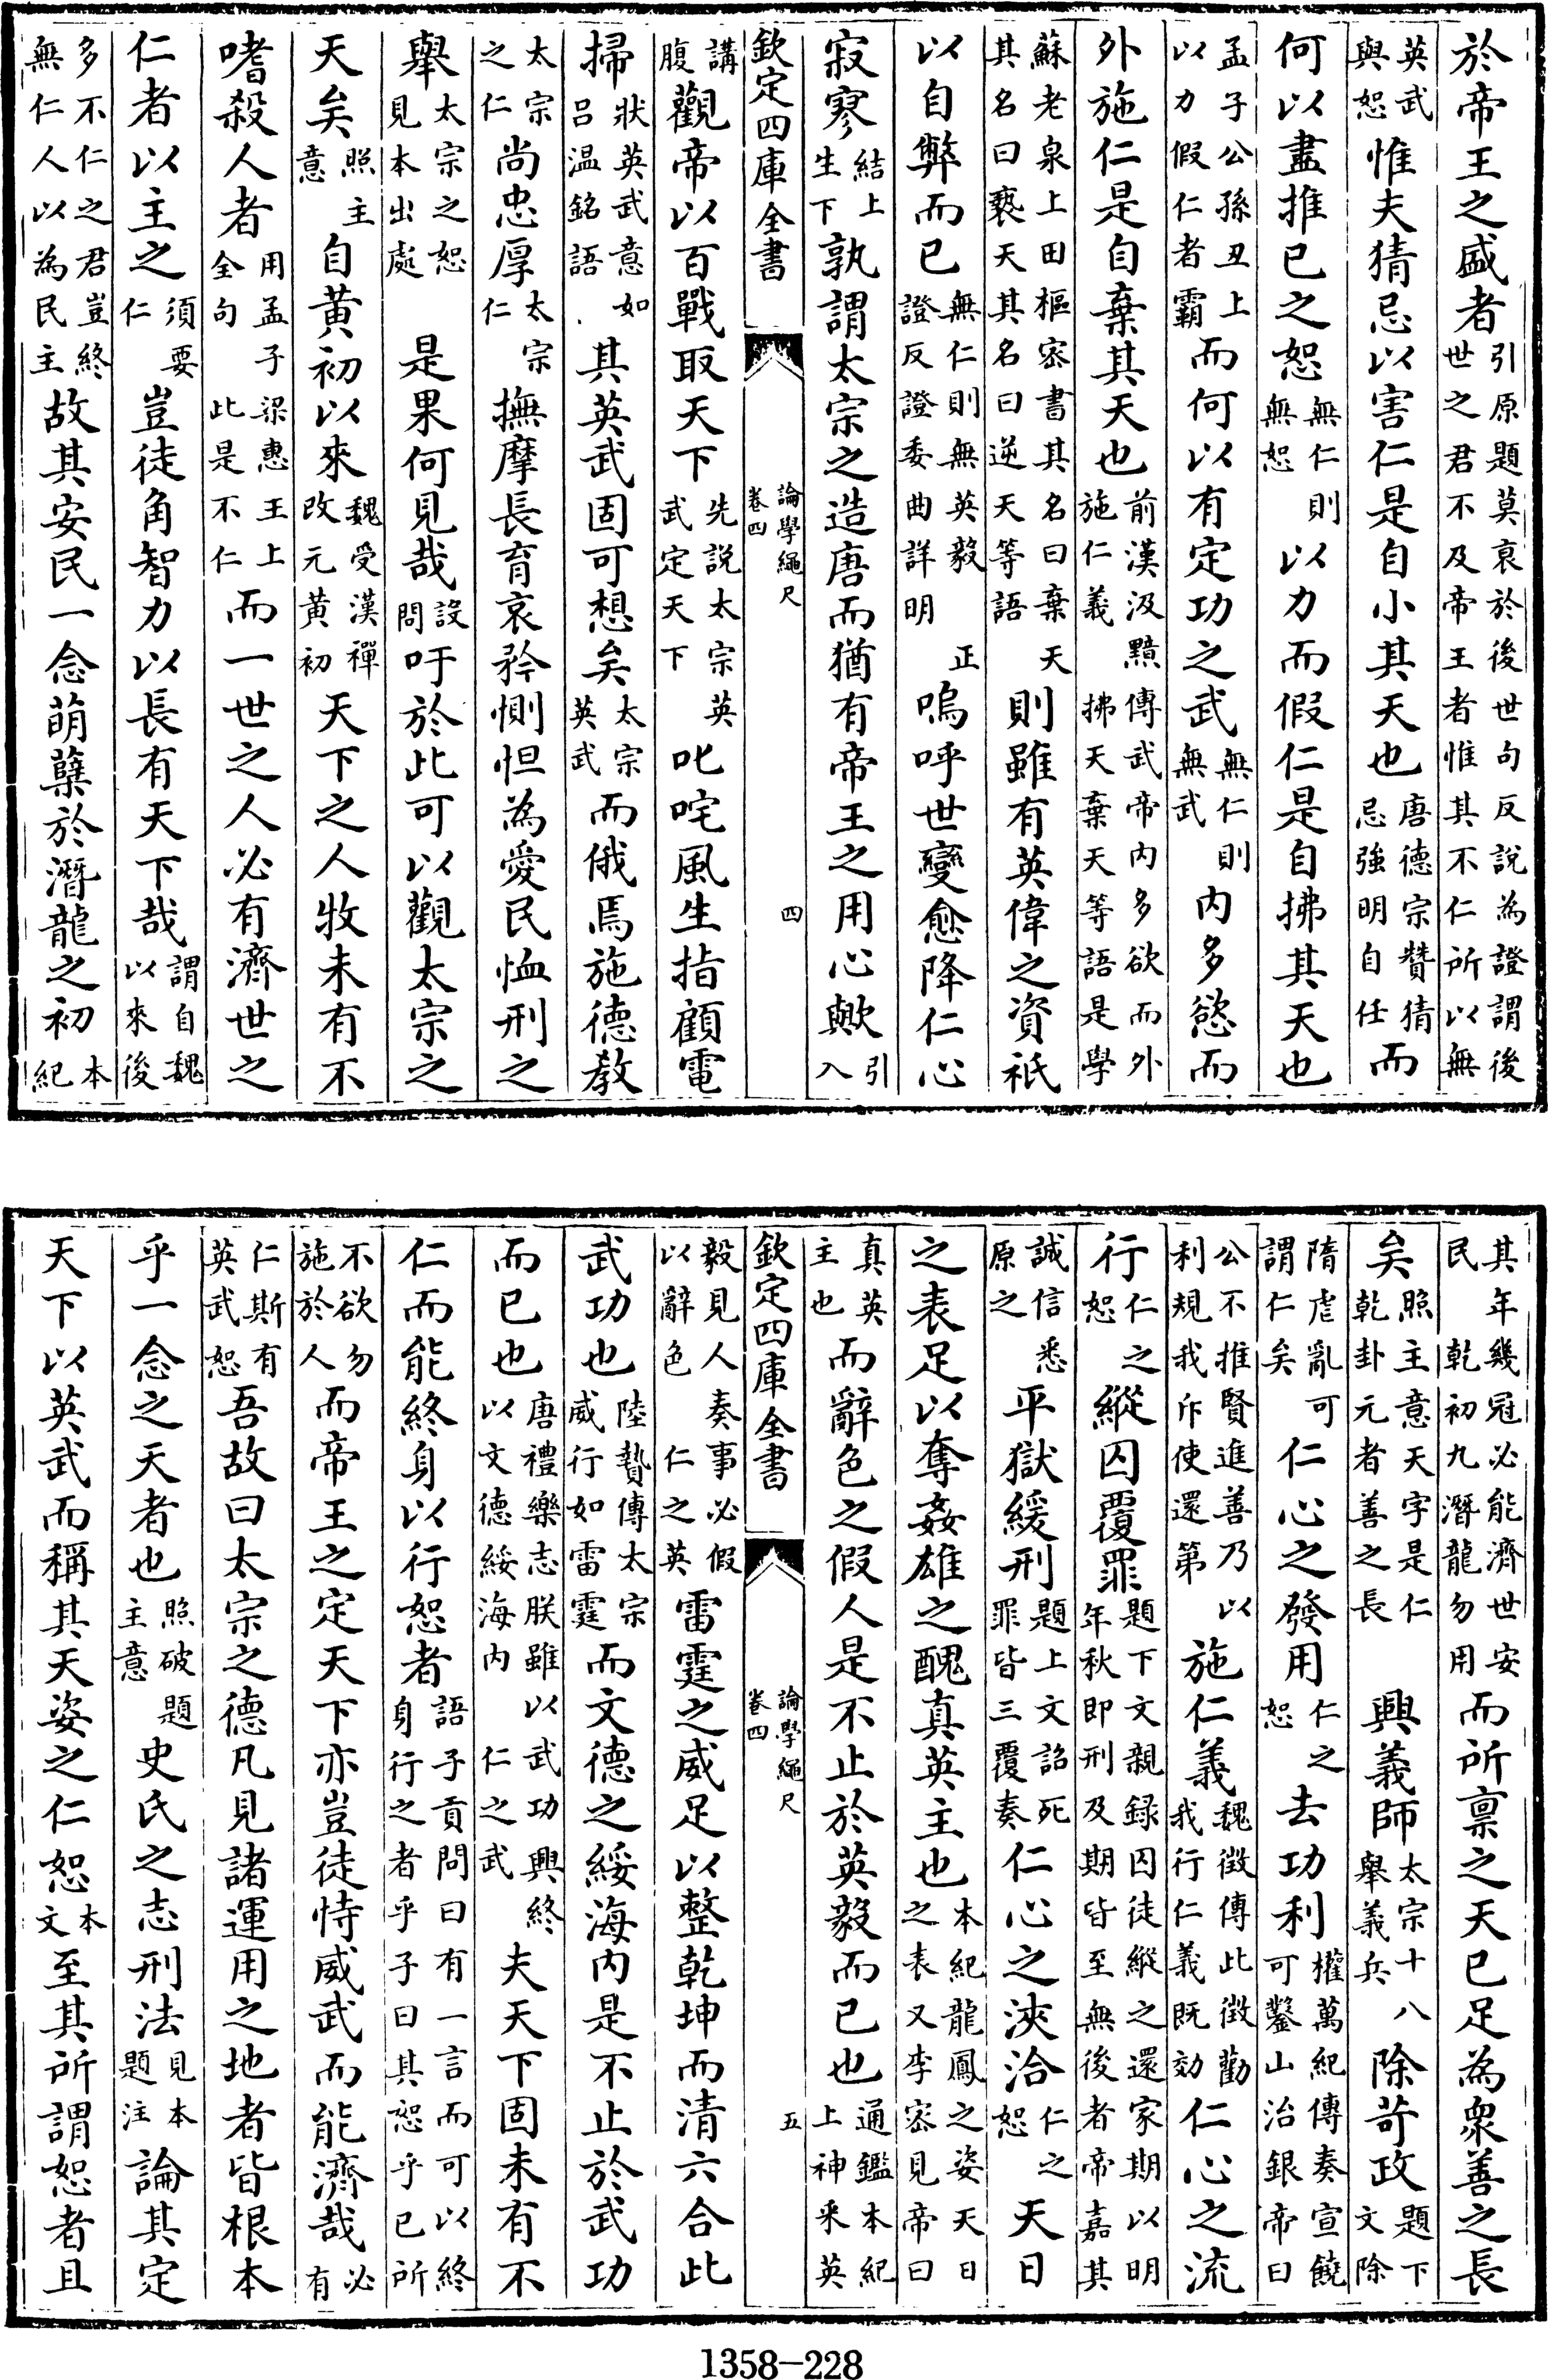 於帝王之盛者引原題莫衰於後世句反說為證謂後世之君不及帝王者惟其不仁所以無
英武與恕惟夫猜忌以害仁是自小其天也唐德宗贊猜忌強明自任而
何以盡推已之恕無仁則無恕以力而假仁是自拂其天也
孟子公孫丑上以力假仁者霸而何以有定功之武無仁則無武內多慾而
外施仁是自棄其天也前漢汲黯傳武帝內多欲而外施仁義拂天棄天等語是學
蘇老泉上田樞密書其名曰棄天其名曰褻天其名曰逆天等語則雖有英偉之資祇
以自弊而已無仁則無英毅正證反證委曲詳明嗚呼世變愈降仁心
寂寥結上生下孰謂太宗之造唐而猶有帝王之用心歟引入
欽定四庫全書 論學繩尺 卷四 四
講腹觀帝以百戰取天下先說太宗英武定天下叱咤風生指顧電
掃狀英武意如呂温銘語其英武固可想矣太宗英武而俄焉施德教
太宗之仁尚忠厚太宗仁撫摩長育哀矜惻怛為愛民恤刑之
舉太宗之恕見本出處是果何見哉設問吁於此可以觀太宗之
天矣照主意自黃初以來魏受漢禪改元黃初天下之人牧未有不
嗜殺人者用孟子梁惠王上全句此是不仁而一世之人必有濟世之
仁者以主之須要仁豈徒角智力以長有天下哉謂自魏以來後
多不仁之君豈終無仁人以為民主故其安民一念萌蘖於潛龍之初本紀
其年幾冠必能濟世安民乾初九潛龍勿用而所禀之天已足為衆善之長
矣照主意天字是仁乾卦元者善之長興義師太宗十八舉義兵除苛政題下文除
隋虐亂可謂仁矣仁心之發用仁之恕去功利權萬紀傳奏宣饒可鑿山冶銀帝曰
公不推賢進善乃以利規我斥使還第施仁義魏徵傳此徵勸我行仁義既効仁心之流
行仁之恕縱囚覆罪題下文親録囚徒縱之還家期以明年秋即刑及期皆至無後者帝嘉其
誠信悉原之平獄緩刑題上文詔死罪皆三覆奏仁心之浹洽仁之恕天日
之表足以奪姦雄之醜真英主也本紀龍鳳之姿天日之表又李密見帝曰
真英主也而辭色之假人是不止於英毅而已也通鑑本紀上神采英
欽定四庫全書 論學繩尺 卷四 五
毅見人奏事必假以辭色仁之英雷霆之威足以整乾坤而清六合此
武功也陸贄傳太宗威行如雷霆而文德之綏海內是不止於武功
而已也唐禮樂志朕雖以武功興終以文德綏海內仁之武夫天下固未有不
仁而能終身以行恕者語子貢問曰有一言而可以終身行之者乎子曰其恕乎已所
不欲勿施於人而帝王之定天下亦豈徒恃威武而能濟哉必有
仁斯有英武恕吾故曰太宗之德凡見諸運用之地者皆根本
乎一念之天者也照破題主意史氏之志刑法見本題注論其定
天下以英武而稱其天姿之仁恕本文至其所謂恕者且
1358-228